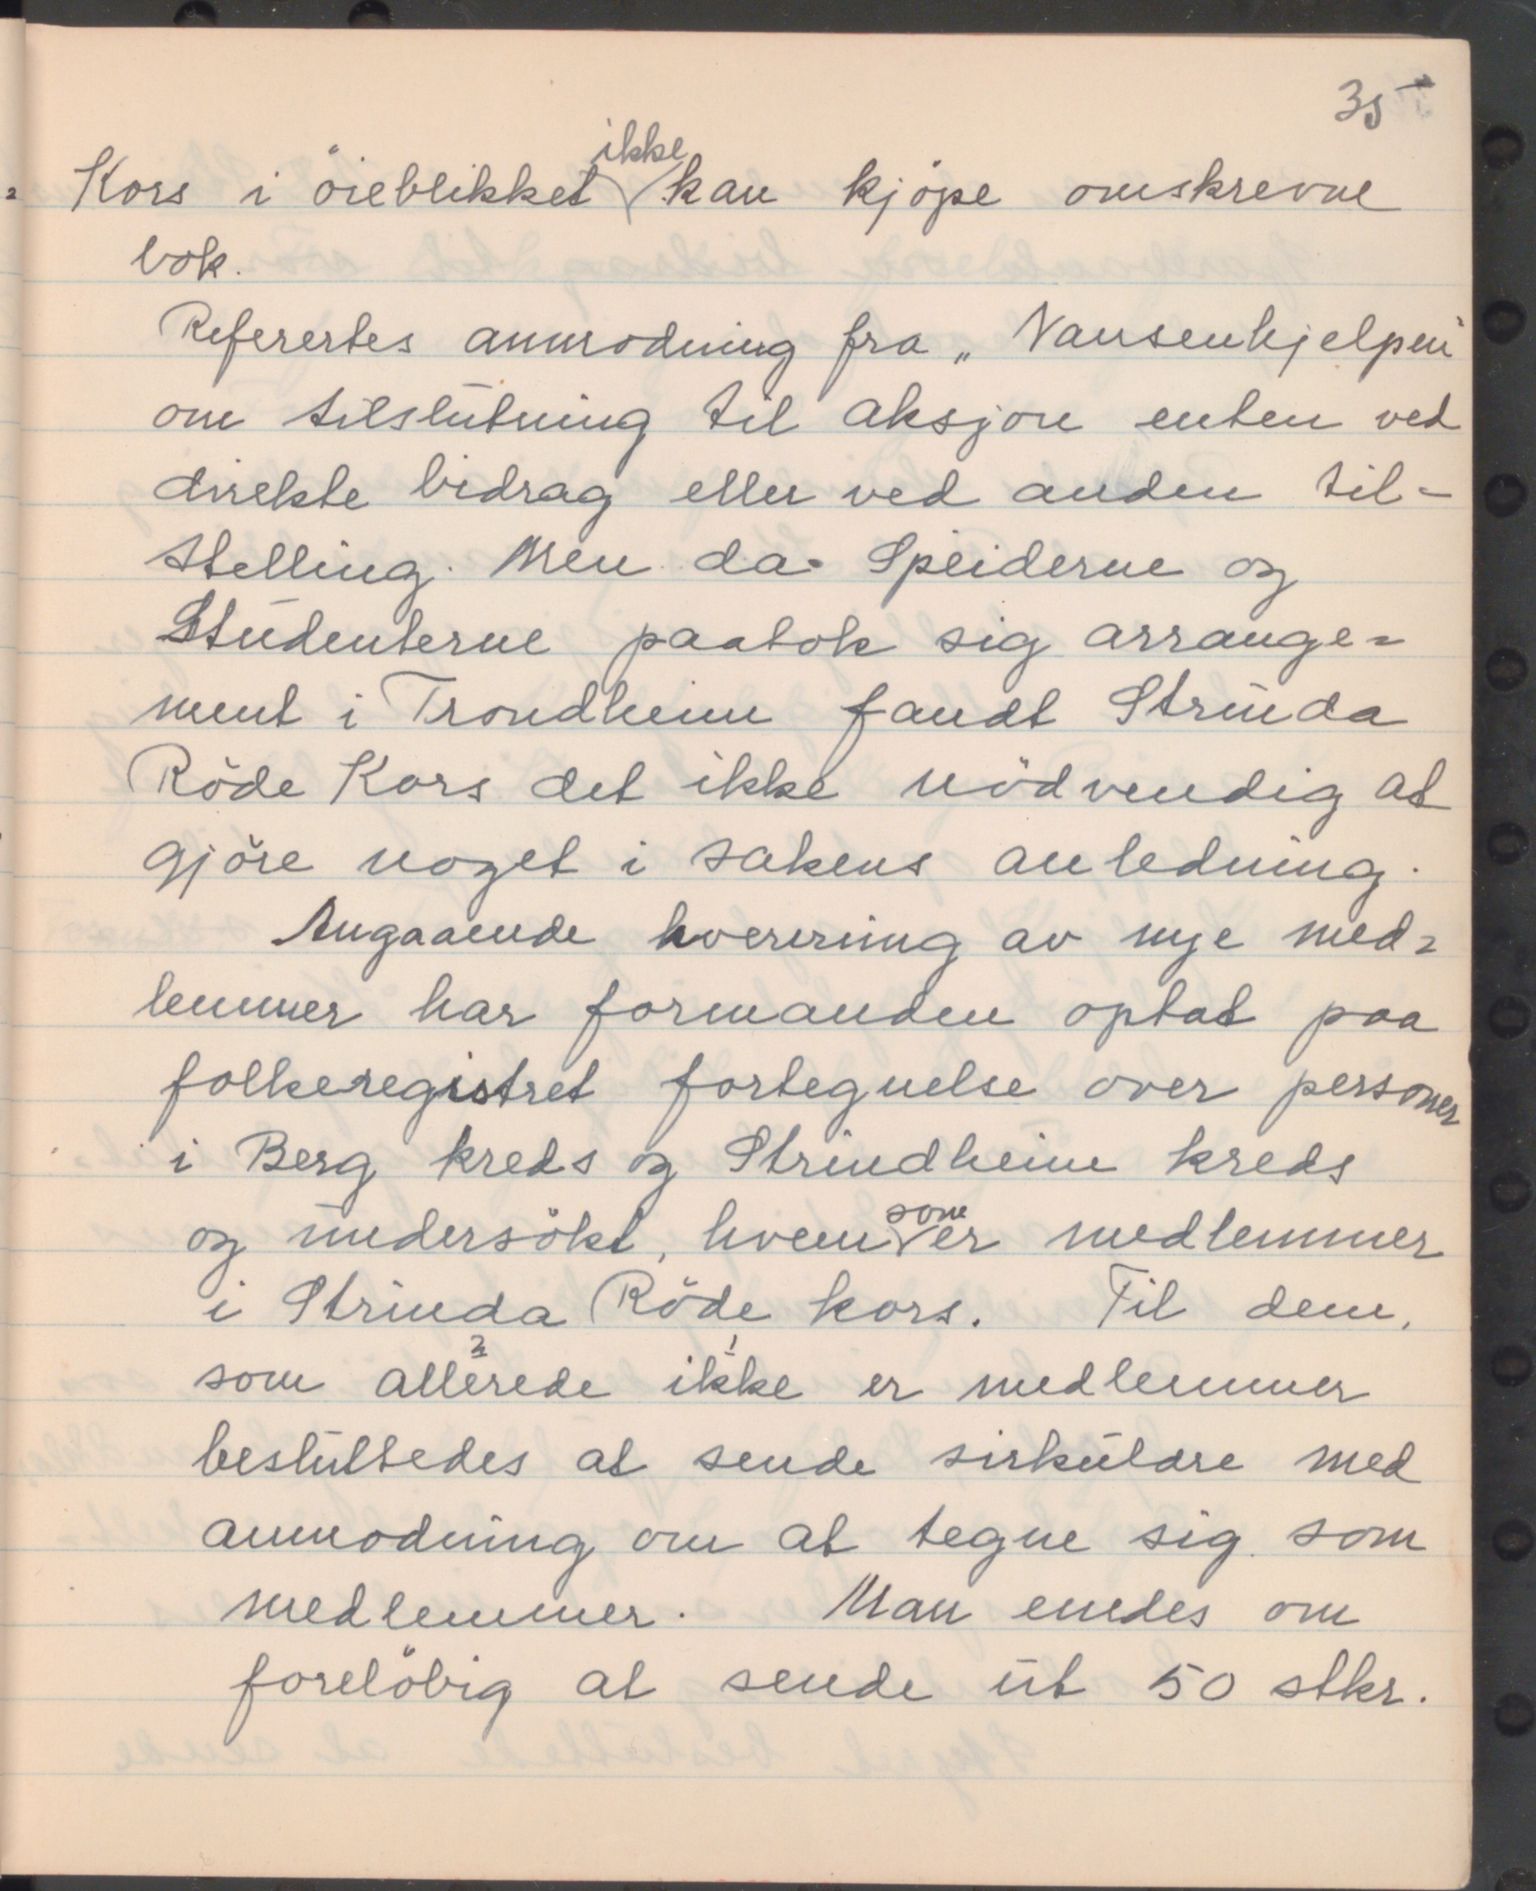 35
Kors i öieblikket ikke kan kjöpe omskrevne
bok.
Referertes anmodning fra „Nansenhjelpen"
om tilslutning til aksjon enten ved
direkte bidrag eller ved anden til-
stelling. Men da Speiderne og
Studenterne paatok sig arrange=
ment i Trondheim fandt Strinda
Röde Kors det ikke nödvendig at
gjöre noget i sakens anledning.
Angaaende hverering av nye med=
lemmer har formanden optat paa
folkeregistret fortegnelse over personer
i Berg kreds og Strindheim kreds
og undersökt, hvem som er medlemmer
i Strinda Röde kors. Til dem,
som allerede ikke er medlemmer
besluttedes at sende sirkulære med
anmodning om at tegne sig som
medlemmer. Man enedes om
forelöbig at sende ut 50 stkr.